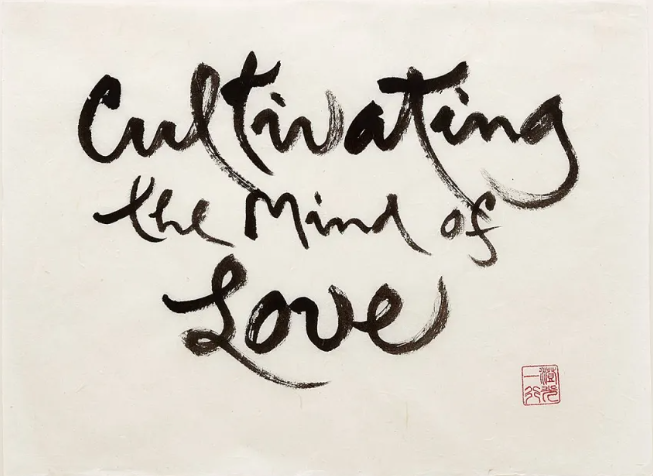 Cultivating
the Mind of
Love